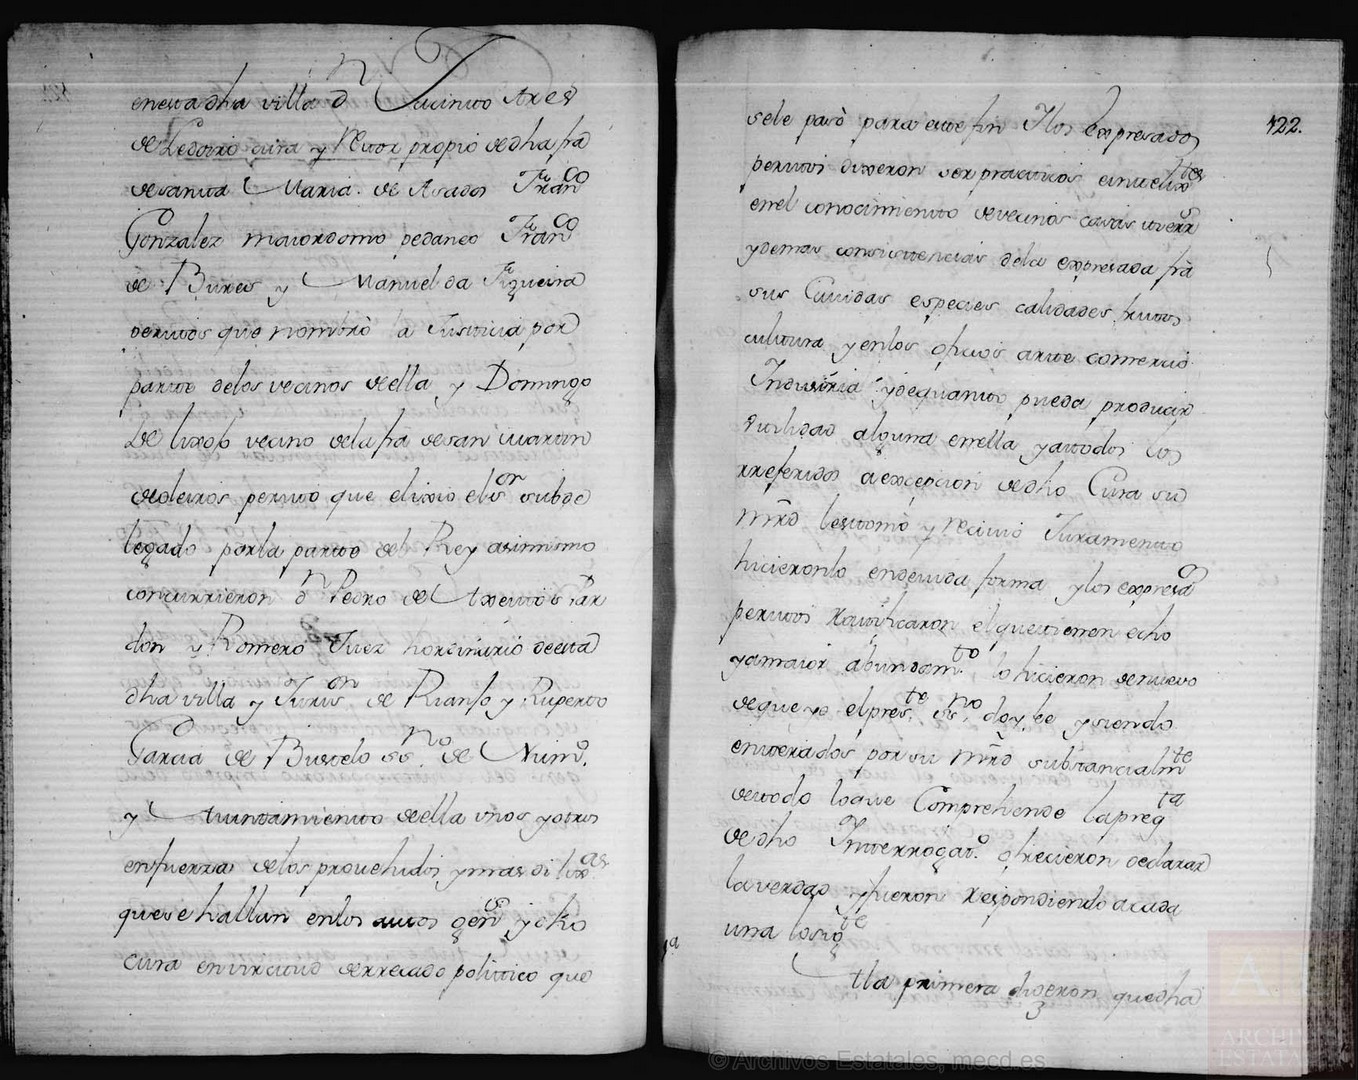 enesta dha villa dn Jacinto Ares
de Ledoiro cura y Rector propio de dha fra
de santa Maria de Asados Franco
Gonzalez maiordomo pedaneo Franco
de Bures y Manuel da Figueira
peritos que nombró la Justicia por
parte delos vecinos de ella y Domingo
de vecino dela fra de san martin
de oleiros perito que elixio el sor subde
legado por la parte del Rey asimismo
concurrieron dn Pedro de Par
don y Romero Juez hordinario de esta
dha villa y Jurison de Rianfo y Ruperto
Garcia de Bustelo ssno de Numo.
y Aiuntamiento de ella unos y otros
enfuerza delos provehidos y mas dilixas
quese hallan enlos autos gens y dho
cura en virtud de rrecado politico que
422.
sele pasó para este fin Ylos expresados
peritos dixeron ser practicos e intelixtes
enel conocimiento de vecinos casas tierrs
y demas consistencias dela expresada fra
sus Cavidas especies calidades frutos
cultura y enlos oficios arte comercio
Industria y de quanto pueda producir
utilidad alguna en ella y a todos los
rreferidos a excepcion de dho Cura su
mrd les tomó y recivió Juramento
hicieronlo en devida forma y los expresados
peritos Ratificaron el que tienen echo
y a maior abundamto lo hicieron de nuevo
de que yo el preste ssno doy fee y siendo
enterados por su mrd substancialmte
de todo loque Comprehende la pregta
de dho Interrogato. ofrecieron declarar
la verdad y fueron respondiendo a cada
una lo sigte
1a
Ala primera dixeron que dha
© Archivos Estatales, mecd.es